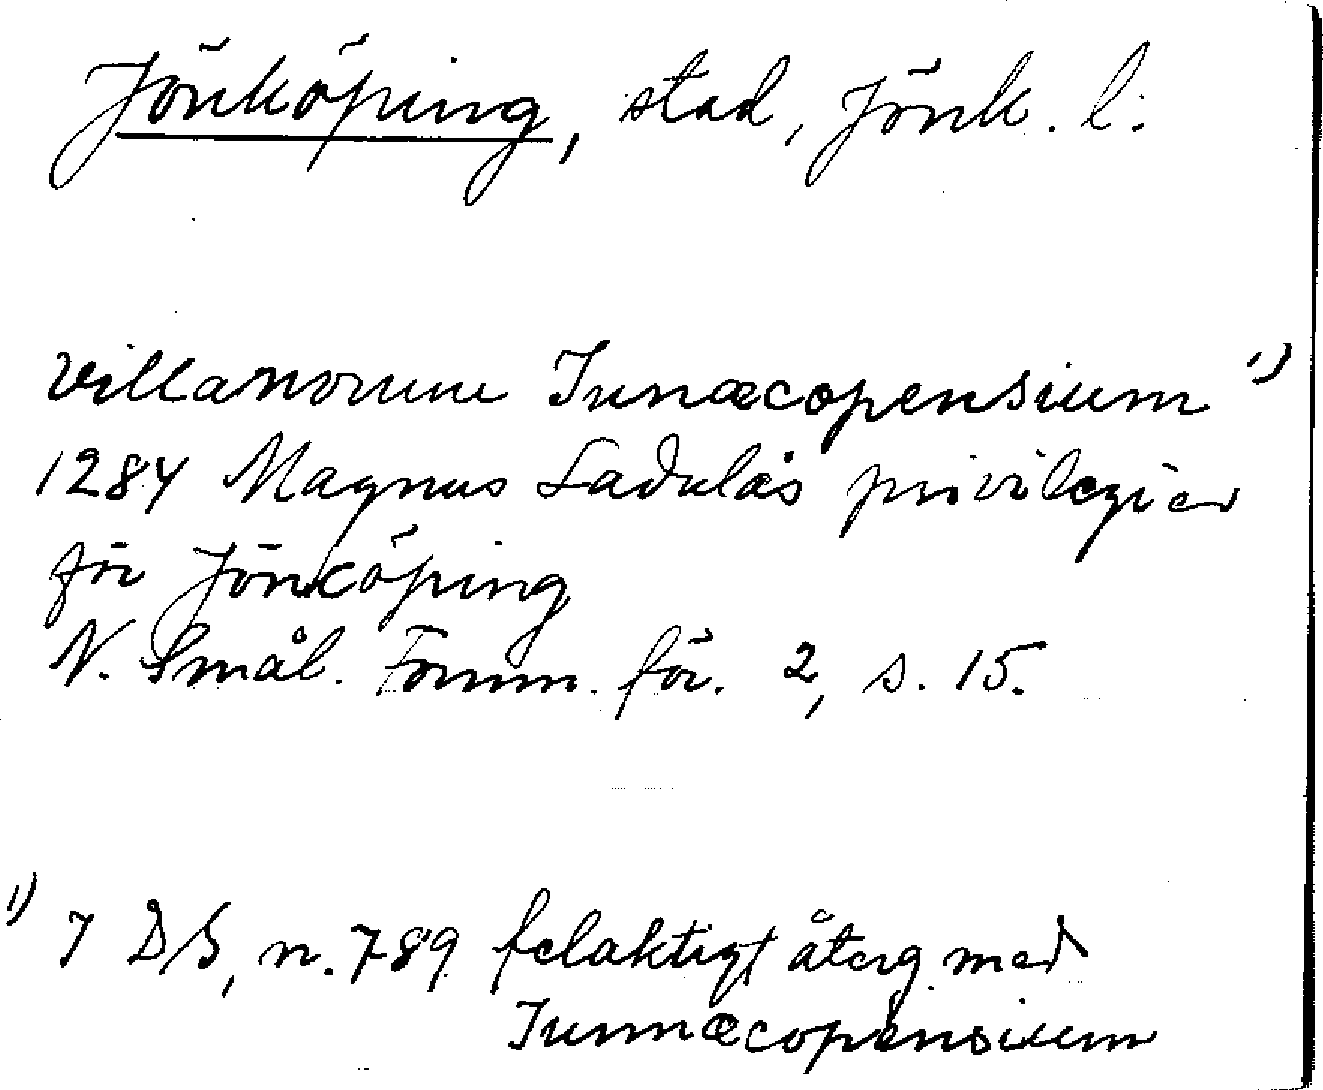 Jönköping, stad, Jönk. l.
villanorum Junæcopensium ¹)
1284 Magnus Ladulås privilegier
för Jönköping
N. Smål. Fornm. för. 2, s. 15.
¹) I DS, n. 789 felaktigt återg. med
Junnæcopensium